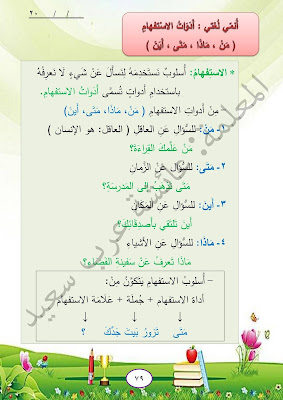 ٢٠ / /
أُنَمّي لُغَتي : أَدَواتُ الاستفهامِ
( مَنْ ، مَاذَا ، مَتَى ، أَيْنَ )
* الاستفهام: أسلوبٌ نَستَخدِمُهُ لِنَسأَلَ عَنْ شيءٍ لا نَعرِفُهُ
باستخدام أدواتٍ تُسمَّى أدَواتِ الاستفهام.
مِنْ أدواتِ الاستفهام ( مَنْ، مَاذا، مَتَى، أين)
١- مَنْ: للسُّؤالِ عَنِ العاقلِ ( العاقل: هو الإنسان )
مَنْ عَلَّمَكَ القِرَاءَةَ؟
٢- مَتَى: للسُّؤالِ عَنِ الزَّمانِ
مَتَى تَذْهَبُ إلى المَدرَسَةِ؟
٣- أينَ: للسُّؤالِ عَنِ المَكَانِ
أينَ تَلتَقي بأصدقائِكَ؟
٤- مَاذَا: للسُّؤالِ عَنِ الأشياءِ
مَاذَا تَعرِفُ عَنْ سَفينَةِ الفَضَاءِ؟
– أُسلوبُ الاستفهامِ يَتَكَوَّنُ مِنْ:
أداة الاستفهام + جُملَة + عَلامَة الاستفهام
↓ ↓ ↓
مَتَى تَزورُ بَيتَ جَدِّكَ ؟
٧٩
المعلمة: عائشة عرب سعيد